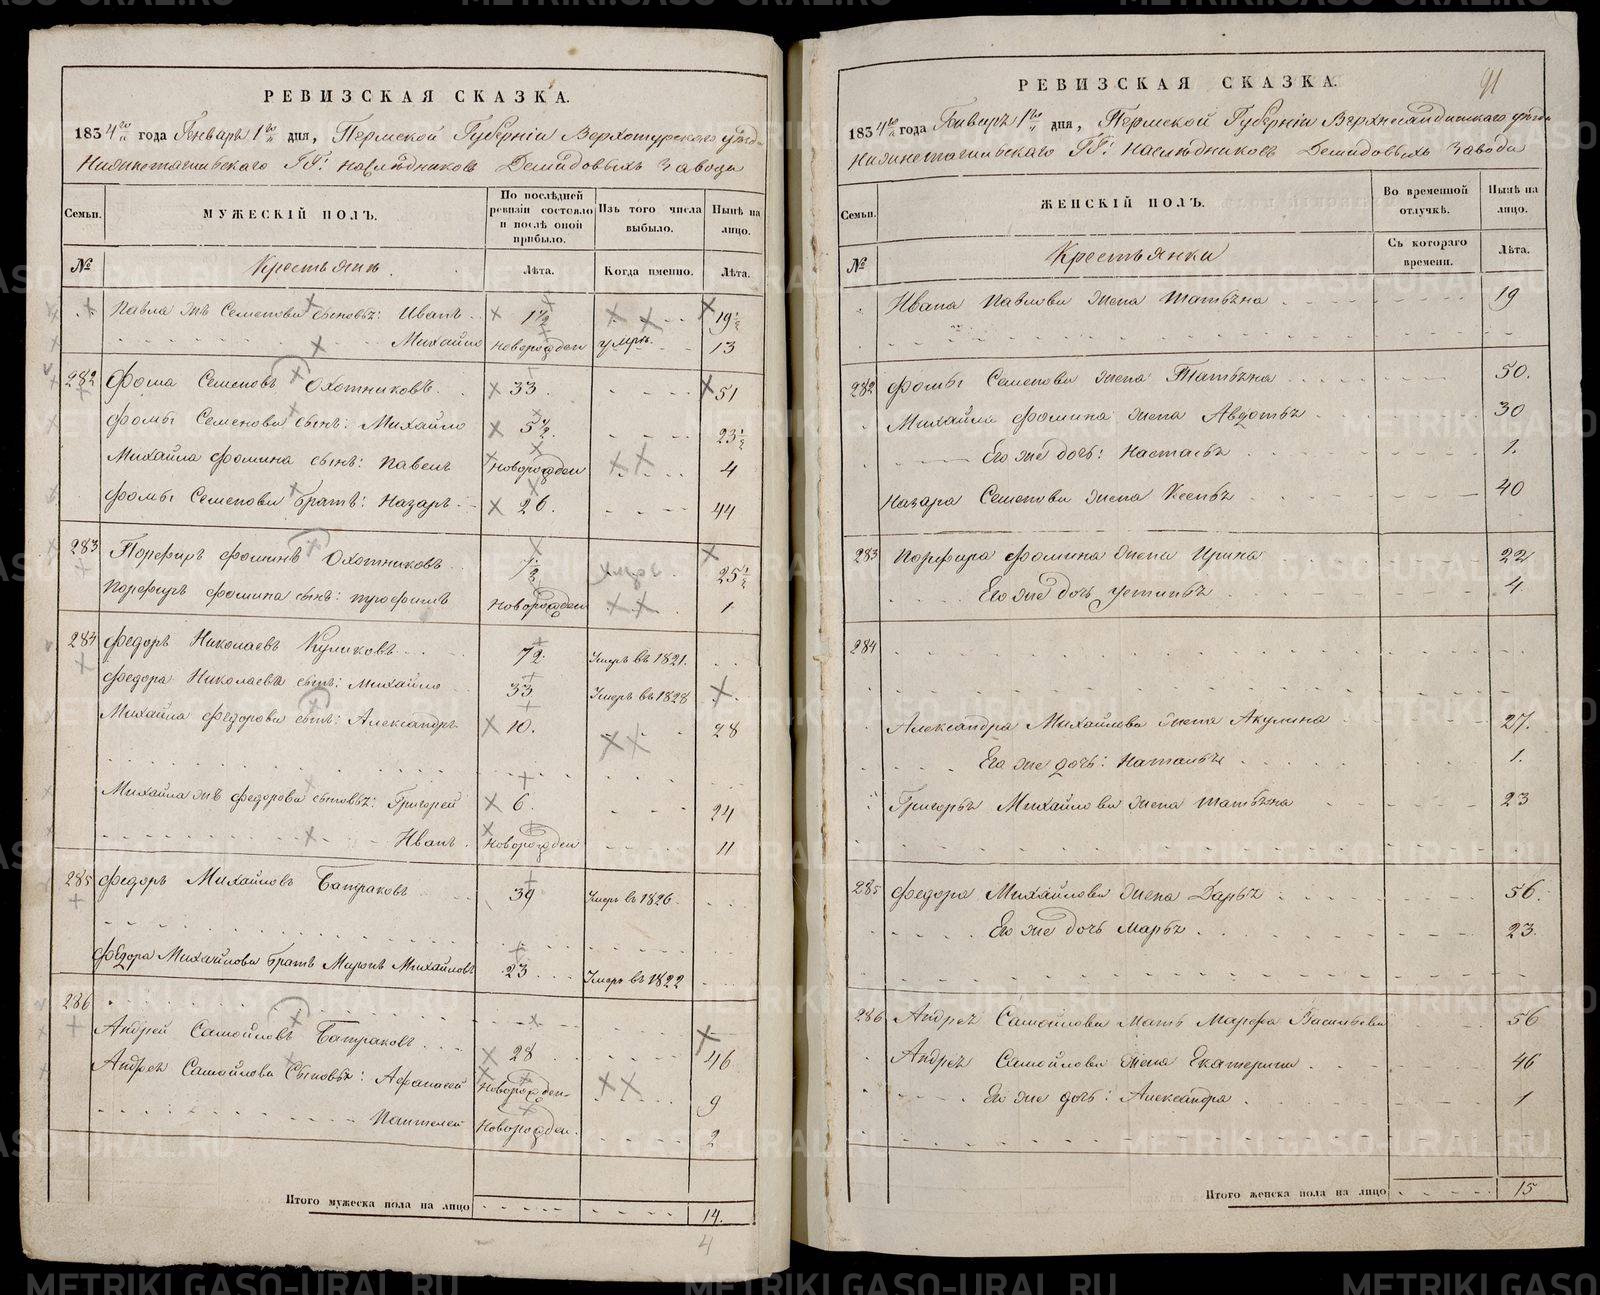 РЕВИЗСКАЯ СКАЗКА.
1834го года Генваря 1го дня, Пермской Губернiи Верхотурскаго уезда
Нижнетагильскаго ГГ: наследниковъ Демидовыхъ Завода
Семьи.
МУЖЕСКIЙ ПОЛЪ.
По последней ревизiи состояло и после оной прибыло.
Изъ того числа выбыло.
Ныне на лицо.
№
Крестьяне
Лета.
Когда именно.
Лета.
Павла Семенова сыновья: Иванъ 1 1/2 19 1/2
Михайло новорожден умре. 13
282 Фома Семеновъ Охотниковъ. 33 51
Фомы Семенова сынъ: Михайло 5 1/2 23 1/2
Михайла Фомина сынъ: Павелъ новорожден 4
Фомы Семенова братъ: Назаръ 26. 44
283 Порфиръ Фоминъ Охотниковъ 7 1/2 25 1/2
Порфира Фомина сынъ: новорожден 1
284 Федоръ Николаевъ Куликовъ 72. Умеръ въ 1821.
Федора Николаева сынъ: Михайло 33 Умеръ въ 1828
Михайла Федорова сынъ: Александръ 10. 28
Михайла жъ Федорова сыновья: Григорей 6. 24
Иванъ. новорожден 11
285 Федоръ Михайловъ Батраковъ 39 Умеръ въ 1826.
Федора Михайлова братъ Миронъ Михайловъ 23 Умеръ въ 1822
286
Андрей Самойловъ Батраковъ 28 46
Андрея Самойлова сыновья: Афанасей новорожден 9
Пантелей новорожден. 2
Итого мужеска пола на лицо 14.
4
91
РЕВИЗСКАЯ СКАЗКА.
1834го года Генваря 1го дня, Пермской Губернiи Верхотурскаго уезда
Нижнетагильскаго ГГ: Наследниковъ Демидовыхъ Завода
Семьи.
ЖЕНСКIЙ ПОЛЪ.
Во временной отлучке.
Ныне на лицо.
№
Крестьянки
Съ котораго времени.
Лета.
Ивана Павлова жена Татьяна 19
282 Фомы Семенова жена Татьяна 50.
Михайла Фомина жена Авдотья 30
Его же дочь: Настасья 1.
Назара Семенова жена Ксенья 40
283 Порфира Фомина жена Ирина 22
Его же дочь Устинья 4.
284
Александра Михайлова жена Акулина 27.
Его же дочь: Наталья 1.
Григорья Михайлова жена Татьяна 23
285 Федора Михайлова жена Дарья 56.
Его же дочь Марья 23.
286 Андрея Самойлова Мать Марфа Васильева 56
Андрея Самойлова жена Екатерина 46
Его же дочь: Александра 1
Итого женска пола на лицо 15
METRIKI.GASO-URAL.RU